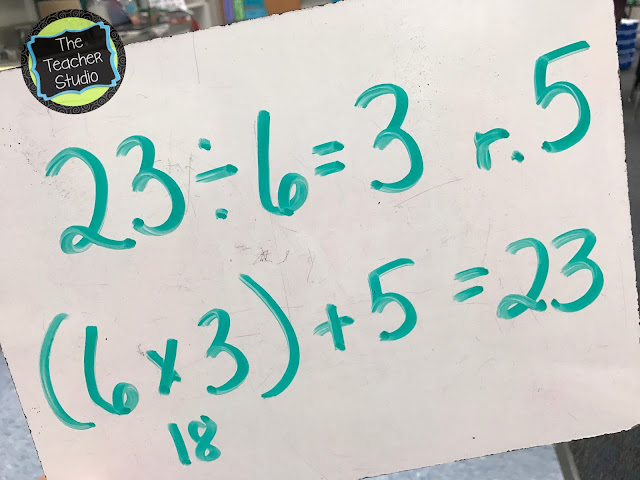 The
Teacher
Studio
23 ÷ 6 = 3 r. 5
(6 x 3) + 5 = 23
18